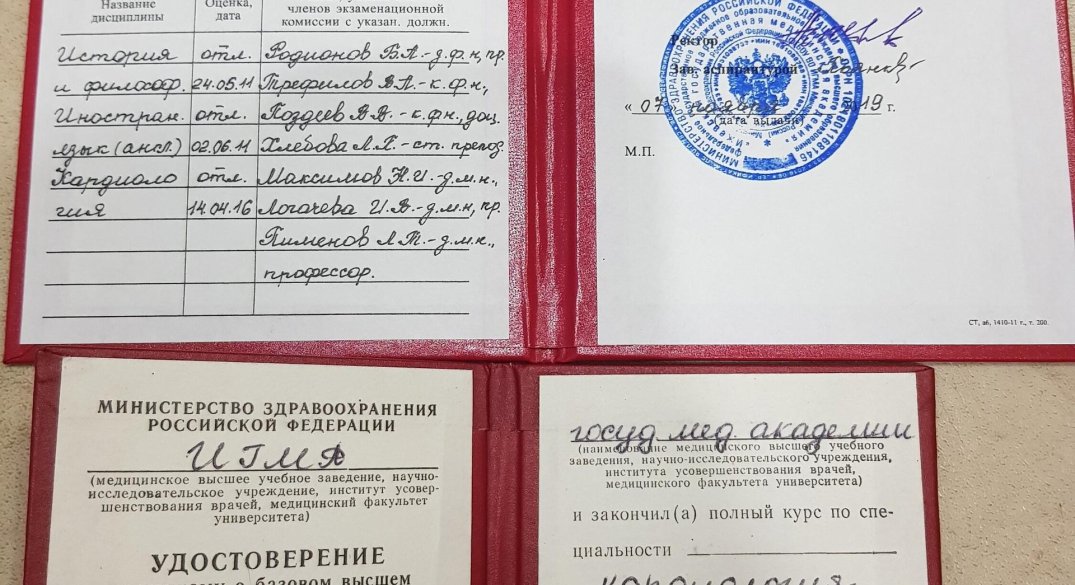 Название
дисциплины
Оценка,
дата
членов экзаменационной
комиссии с указан. должн.
История отл. Родионов Б.А.-д.ф.н, пр.
и философ. 24.05.11 Трефилов В.А.-к.ф.н.,
Иностран. отл. Поздеев В.В.-к.фн., доц.
язык (англ.) 02.06.11 Хлебова Л.П.-ст. препод.
Кардиоло отл. Максимов Н.И.-д.м.н.,
гия 14.04.16 Логачева И.В.-д.м.н, пр.
Пименов Л.Т.-д.м.н.,
профессор.
Ректор
Зав. аспирантурой
« 07 ноября 2019 г.
(дата выдачи)
М.П.
СТ, аб, 1410-11 г., т. 200.
МИНИСТЕРСТВО ЗДРАВООХРАНЕНИЯ
РОССИЙСКОЙ ФЕДЕРАЦИИ
ИГМА
(медицинское высшее учебное заведение, научно-
исследовательское учреждение, институт усовер-
шенствования врачей, медицинский факультет
университета)
УДОСТОВЕРЕНИЕ
о базовом высшем
госуд. мед. академии
(наименование медицинского высшего учебного
заведения, научно-исследовательского учреждения,
института усовершенствования врачей,
медицинского факультета университета)
и закончил(а) полный курс по спе-
циальности